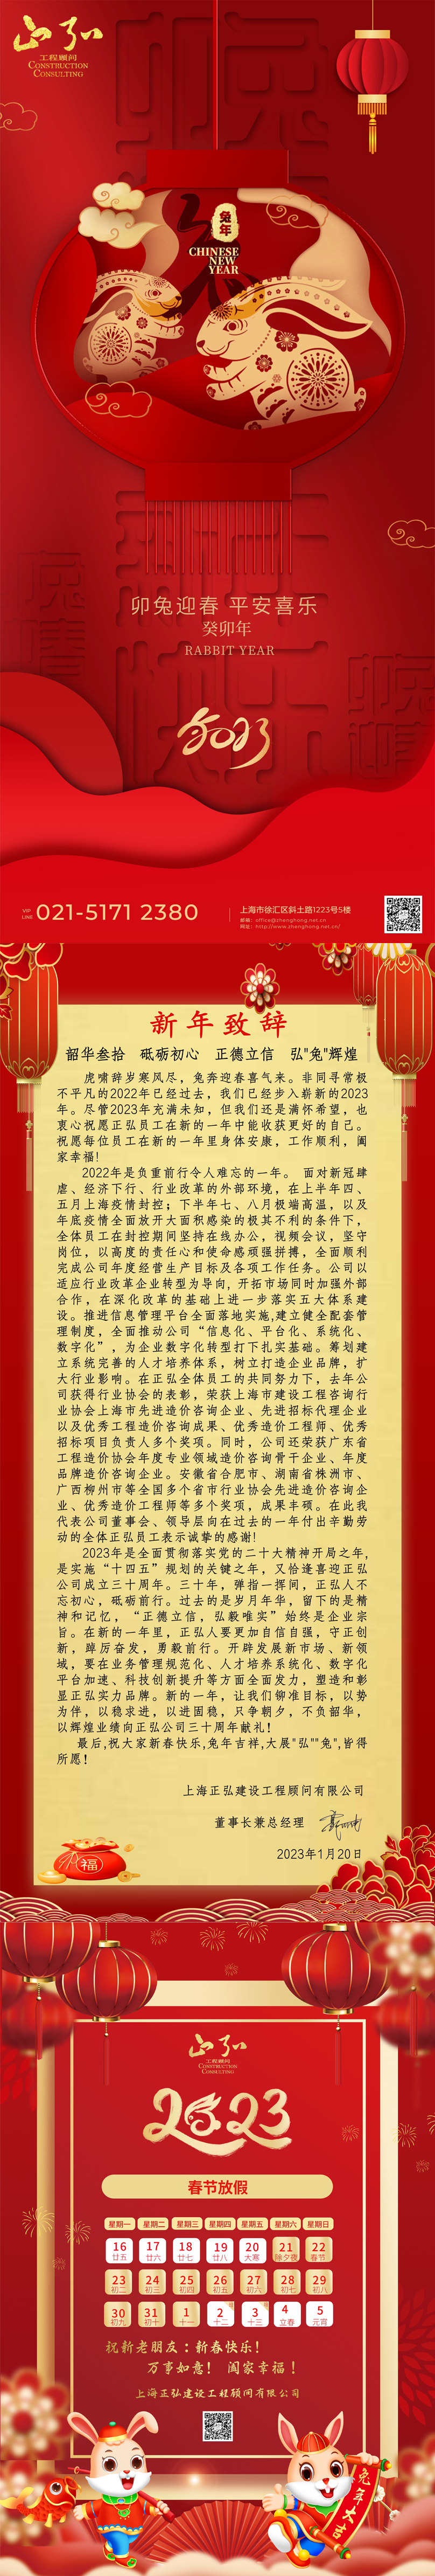 正弘
工程顾问
CONSTRUCTION
CONSULTING
兔年
CHINESE
NEW
YEAR
卯兔迎春 平安喜乐
癸卯年
RABBIT YEAR
2023
VIP
LINE
021-5171 2380
上海市徐汇区斜土路1223号5楼
邮箱：office@zhenghong.net.cn
网址：http://www.zhenghong.net.cn/
新年致辞
韶华叁拾 砥砺初心 正德立信 弘"兔"辉煌
虎啸辞岁寒风尽，兔奔迎春喜气来。非同寻常极
不平凡的2022年已经过去，我们已经步入崭新的2023
年。尽管2023年充满未知，但我们还是满怀希望，也
衷心祝愿正弘员工在新的一年中能收获更好的自己。
祝愿每位员工在新的一年里身体安康，工作顺利，阖
家幸福！
2022年是负重前行令人难忘的一年。 面对新冠肆
虐、经济下行、行业改革的外部环境，在上半年四、
五月上海疫情封控；下半年七、八月极端高温，以及
年底疫情全面放开大面积感染的极其不利的条件下，
全体员工在封控期间坚持在线办公，视频会议，坚守
岗位，以高度的责任心和使命感顽强拼搏，全面顺利
完成公司年度经营生产目标及各项工作任务。公司以
适应行业改革企业转型为导向, 开拓市场同时加强外部
合作，在深化改革的基础上进一步落实五大体系建
设。推进信息管理平台全面落地实施,建立健全配套管
理制度，全面推动公司“信息化、平台化、系统化、
数字化”，为企业数字化转型打下扎实基础。筹划建
立系统完善的人才培养体系，树立打造企业品牌，扩
大行业影响。在正弘全体员工的共同努力下，去年公
司获得行业协会的表彰，荣获上海市建设工程咨询行
业协会上海市先进造价咨询企业、先进招标代理企业
以及优秀工程造价咨询成果、优秀造价工程师、优秀
招标项目负责人多个奖项。同时，公司还荣获广东省
工程造价协会年度专业领域造价咨询骨干企业、年度
品牌造价咨询企业。安徽省合肥市、湖南省株洲市、
广西柳州市等全国多个省市行业协会先进造价咨询企
业、优秀造价工程师等多个奖项，成果丰硕。在此我
代表公司董事会、领导层向在过去的一年付出辛勤劳
动的全体正弘员工表示诚挚的感谢！
2023年是全面贯彻落实党的二十大精神开局之年，
是实施“十四五”规划的关键之年，又恰逢喜迎正弘
公司成立三十周年。三十年，弹指一挥间，正弘人不
忘初心，砥砺前行。过去的是岁月年华，留下的是精
神和记忆，“正德立信，弘毅唯实”始终是企业宗
旨。在新的一年里，正弘人要更加自信自强，守正创
新，踔厉奋发，勇毅前行。开辟发展新市场、新领
域，要在业务管理规范化、人才培养系统化、数字化
平台加速、科技创新提升等方面全面发力，塑造和彰
显正弘实力品牌。新的一年，让我们铆准目标，以势
为伴，以稳求进，以进固稳，只争朝夕，不负韶华，
以辉煌业绩向正弘公司三十周年献礼！
最后,祝大家新春快乐,兔年吉祥,大展"弘""兔",皆得
所愿！
上海正弘建设工程顾问有限公司
董事长兼总经理
2023年1月20日
福
正弘
工程顾问
CONSTRUCTION
CONSULTING
2023
春节放假
星期一 星期二 星期三 星期四 星期五 星期六 星期日
16 17 18 19 20 21 22
廿五 廿六 廿七 廿八 大寒 除夕夜 春节
23 24 25 26 27 28 29
初二 初三 初四 初五 初六 初七 初八
30 31 1 2 3 4 5
初九 初十 十一 十二 十三 立春 元宵
祝新老朋友：新春快乐！
万事如意！ 阖家幸福！
上海正弘建设工程顾问有限公司
兔年大吉